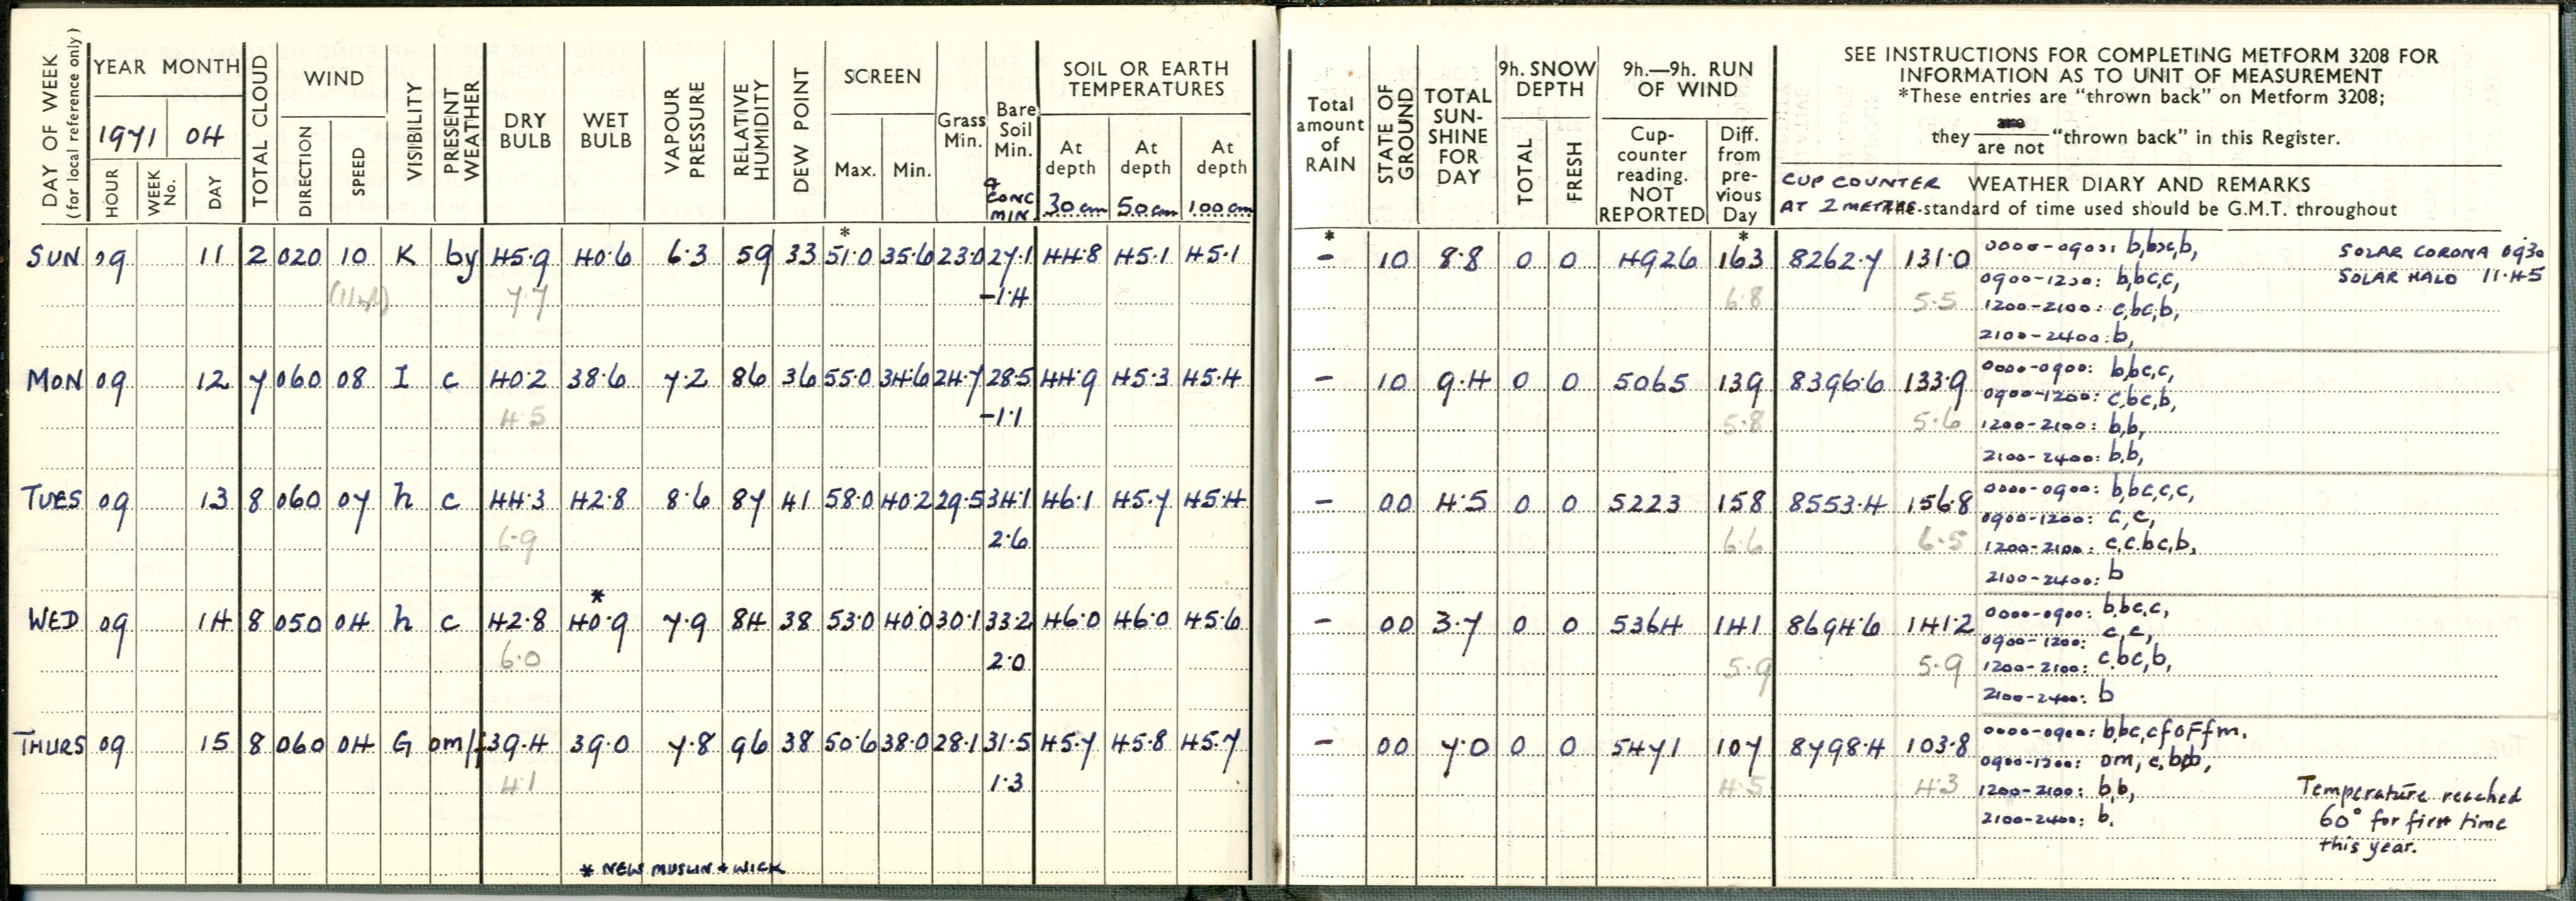 DAY OF WEEK (for local reference only)
YEAR MONTH
1971 04
HOUR WEEK No. DAY
TOTAL CLOUD
WIND
DIRECTION SPEED
VISIBILITY
PRESENT WEATHER
DRY BULB
WET BULB
VAPOUR PRESSURE
RELATIVE HUMIDITY
DEW POINT
SCREEN
Max. Min.
Grass Min.
Bare Soil Min.
& CONC MIN
SOIL OR EARTH TEMPERATURES
At depth At depth At depth
30 cm 50 cm 100 cm
Total amount of RAIN
STATE OF GROUND
TOTAL SUN-SHINE FOR DAY
9h. SNOW DEPTH
TOTAL FRESH
9h.—9h. RUN OF WIND
Cup-counter reading. NOT REPORTED
Diff. from pre-vious Day
SEE INSTRUCTIONS FOR COMPLETING METFORM 3208 FOR
INFORMATION AS TO UNIT OF MEASUREMENT
*These entries are "thrown back" on Metform 3208;
they are / are not "thrown back" in this Register.
CUP COUNTER WEATHER DIARY AND REMARKS
AT 2 METRES The standard of time used should be G.M.T. throughout
* * *
SUN 09 11 2 020 10 K by 45.9 40.6 6.3 59 33 51.0 35.6 23.0 27.1 44.8 45.1 45.1 - 10 8.8 0 0 4926 163 8262.7 131.0 0000-0900: b,bc,b, SOLAR CORONA 0930
0900-1200: b,bc,c, SOLAR HALO 11.45
7.7 -1.4 6.8 5.5 1200-2100: c,bc,b,
2100-2400: b,
MON 09 12 7 060 08 I c 40.2 38.6 7.2 86 36 55.0 34.6 24.7 28.5 44.9 45.3 45.4 - 10 9.4 0 0 5065 139 8396.6 133.9 0000-0900: b,bc,c,
0900-1200: c,bc,b,
4.5 -1.1 5.8 5.6 1200-2100: b,b,
2100-2400: b,b,
TUES 09 13 8 060 07 h c 44.3 42.8 8.6 87 41 58.0 40.2 29.5 34.1 46.1 45.7 45.4 - 00 4.5 0 0 5223 158 8553.4 156.8 0000-0900: b,bc,c,c,
0900-1200: c,c,
6.9 2.6 6.6 6.5 1200-2100: c,c,bc,b,
2100-2400: b
*
WED 09 14 8 050 04 h c 42.8 40.9 7.9 84 38 53.0 40.0 30.1 33.2 46.0 46.0 45.6 - 00 3.7 0 0 5364 141 8694.6 141.2 0000-0900: b,bc,c,
0900-1200: c,c,
6.0 2.0 5.9 5.9 1200-2100: c,bc,b,
2100-2400: b
THURS 09 15 8 060 04 G om/f 39.4 39.0 7.8 96 38 50.6 38.0 28.1 31.5 45.7 45.8 45.7 - 00 7.0 0 0 5471 107 8798.4 103.8 0000-0900: b,bc,cfoFfm.
0900-1200: om, c,
4.1 1.3 4.5 4.3 1200-2100: b,b, Temperature reached
2100-2400: b. 60° for first time
this year.
* NEW MUSLIN + WICK